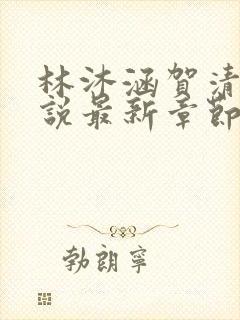 林沐涵賀清
說最新章節
勃朗寧